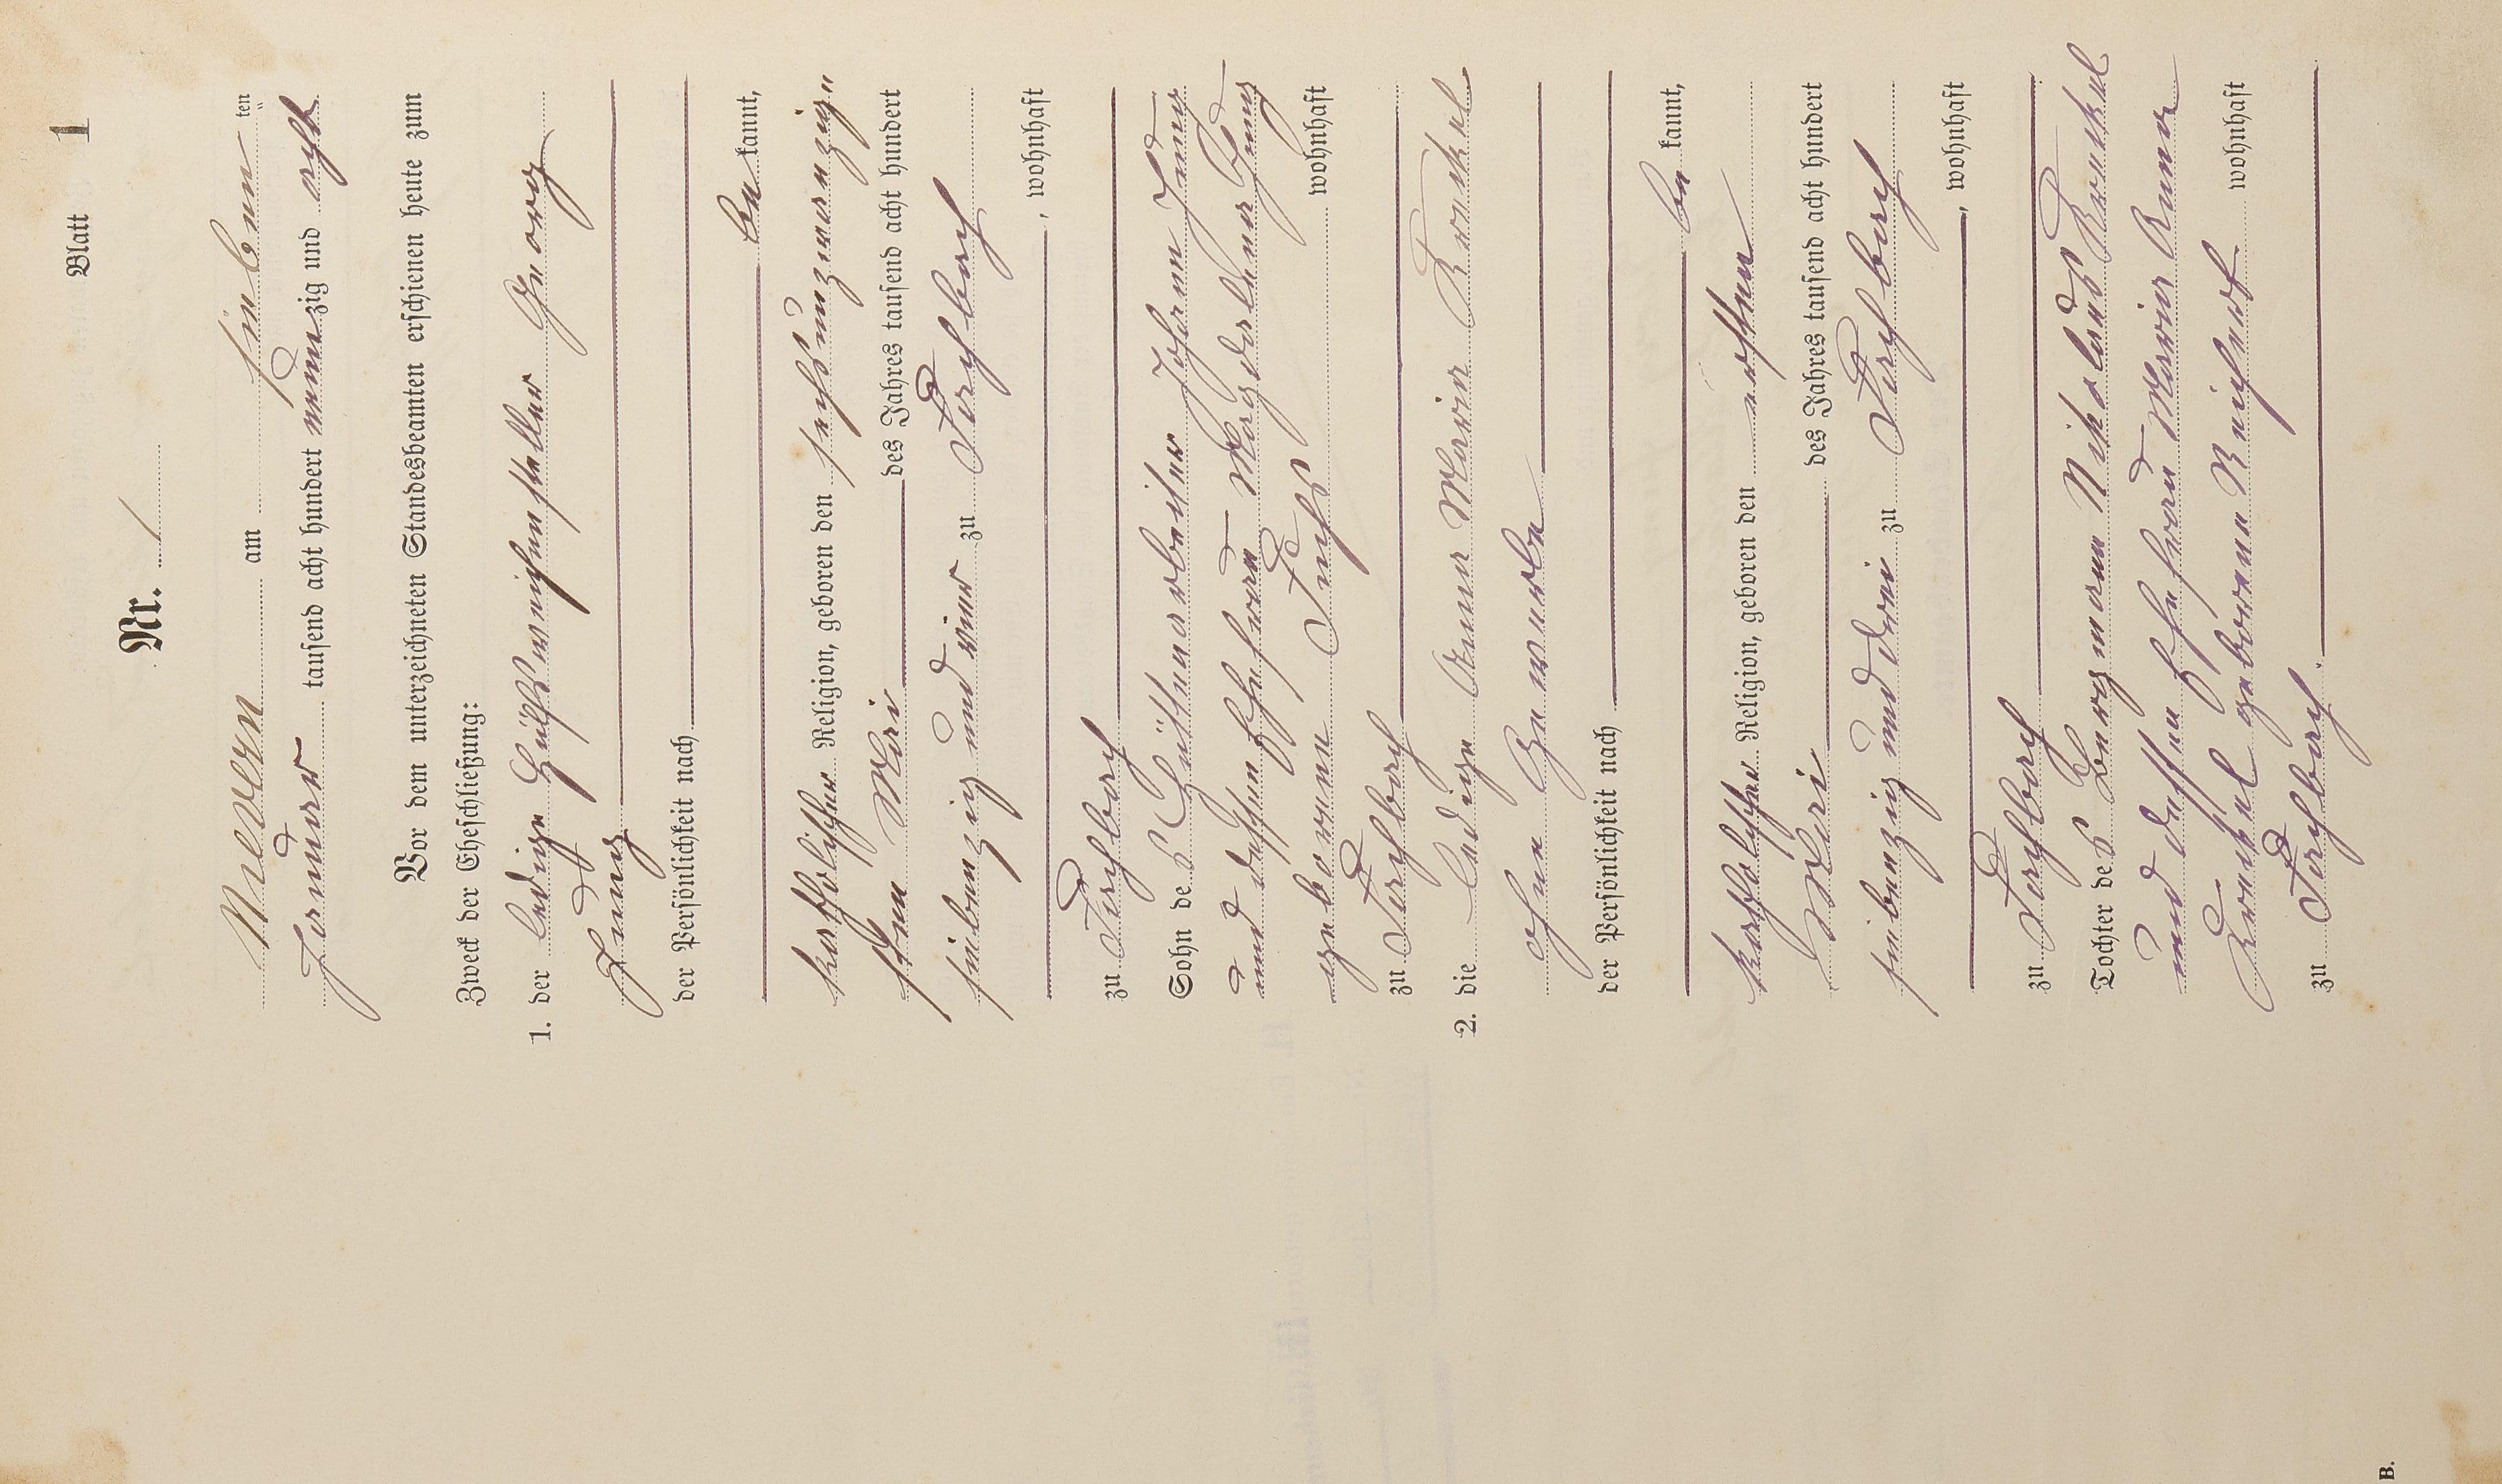 Blatt 1
Nr. 1
Malvern am sieben ten
Januar tausend acht hundert neunzig und acht
Vor dem unterzeichneten Standesbeamten erschienen heute zum
Zweck der Eheschließung:
1. der ledige Hülfsweichensteller Georg
Jung
der Persönlichkeit nach
be kannt,
katholischer Religion, geboren den sechsundzwanzig
sten Mai des Jahres tausend acht hundert
siebenzig und vier zu Fischbach
, wohnhaft
zu Fischbach
Sohn des Hüttenarbeiter Johann Jung
und dessen Ehefrau Magdalena Jung
geborene Fuchs wohnhaft
zu Fischbach
2. die ledige Anna Maria Krunkel
ohne Gewerbe
der Persönlichkeit nach
be kannt,
katholischer Religion, geboren den ersten
Mai des Jahres tausend acht hundert
siebenzig und drei zu Fischbach
, wohnhaft
zu Fischbach
Tochter des Bergmann Nikolaus Krunkel
und dessen Ehefrau Maria Anna
Krunkel geborene Reichert wohnhaft
zu Fischbach.
B.